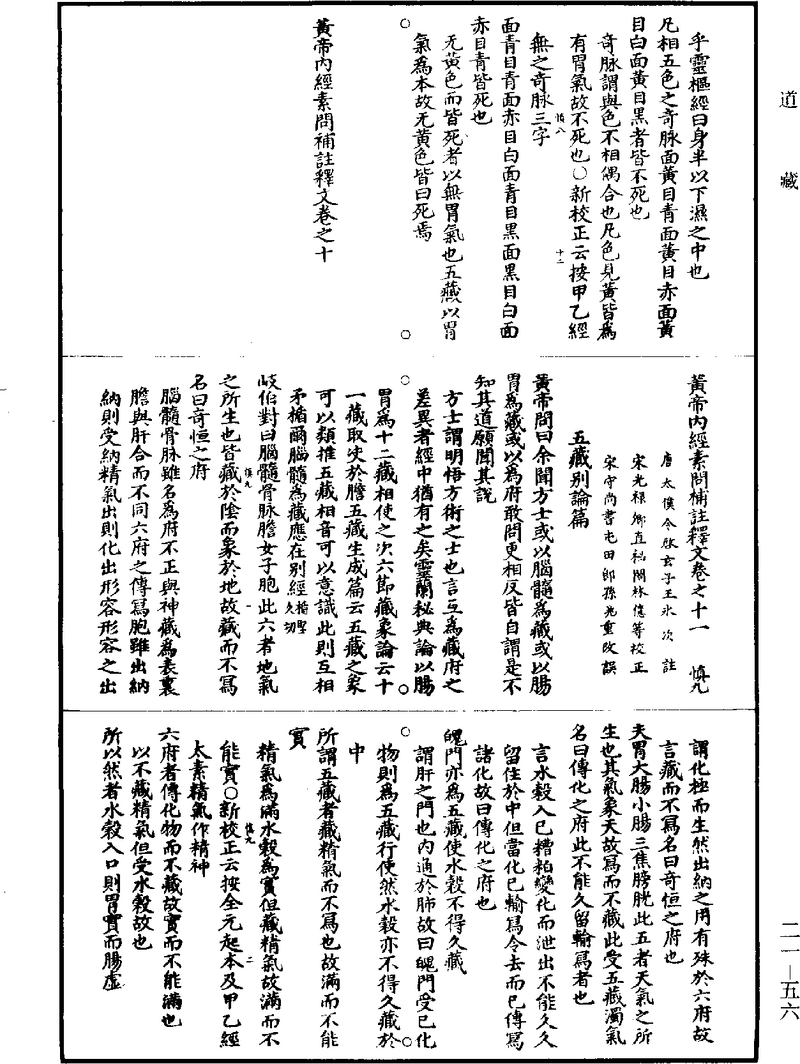 道藏
乎靈樞經曰身半以下濕之中也
凡相五色之奇脉面黃目青面黃目赤面黃
目白面黃目黑者皆不死也
奇脉謂與色不相偶合也凡色見黃皆爲
有胃氣故不死也○新校正云按甲乙經
無之奇脉三字
慎八
十二
面青目青面赤目白面青目黑面黑目白面
赤目青皆死也
无黃色而皆死者以無胃氣也五藏以胃
氣爲本故无黃色皆曰死焉
黃帝內經素問補註釋文卷之十
黃帝內經素問補註釋文卷之十一 慎九
唐太僕令啟玄子王氷次註
宋光祿卿直祕閣林億等校正
宋守尚書屯田郎孫兆重改誤
五藏別論篇
黃帝問曰余聞方士或以腦髓爲藏或以腸
胃爲藏或以爲府敢問更相反皆自謂是不
知其道願聞其說
方士謂明悟方術之士也言互爲藏府之
差異者經中猶有之矣靈蘭秘典論以腸
胃爲十二藏相使之次六節藏象論云十
一藏取決於膽五藏生成篇云五藏之象
可以類推五藏相音可以意識此則互相
矛楯爾腦髓爲藏應在別經楯聖久切
岐伯對曰腦髓骨脉膽女子胞此六者地氣
慎九
一
之所生也皆藏於陰而象於地故藏而不寫
名曰奇恒之府
腦髓骨脉雖名爲府不正與神藏爲表裏
膽與肝合而不同六府之傳寫胞雖出納
納則受納精氣出則化出形容形容之出
謂化極而生然出納之用有殊於六府故
言藏而不寫名曰奇恒之府也
夫胃大腸小腸三焦膀胱此五者天氣之所
生也其氣象天故寫而不藏此受五藏濁氣
名曰傳化之府此不能久留輸寫者也
言水穀入已糟粕變化而泄出不能久久
留住於中但當化已輸寫令去而已傳寫
諸化故曰傳化之府也
魄門亦爲五藏使水穀不得久藏
謂肝之門也內通於肺故曰魄門受已化
物則爲五藏行使然水穀亦不得久藏於
中
所謂五藏者藏精氣而不寫也故滿而不能
實
精氣爲滿水穀爲實但藏精氣故滿而不
能實○新校正云按全元起本及甲乙經
慎九
二
太素精氣作精神
六府者傳化物而不藏故實而不能滿也
以不藏精氣但受水穀故也
所以然者水穀入口則胃實而腸虛
二一—五六